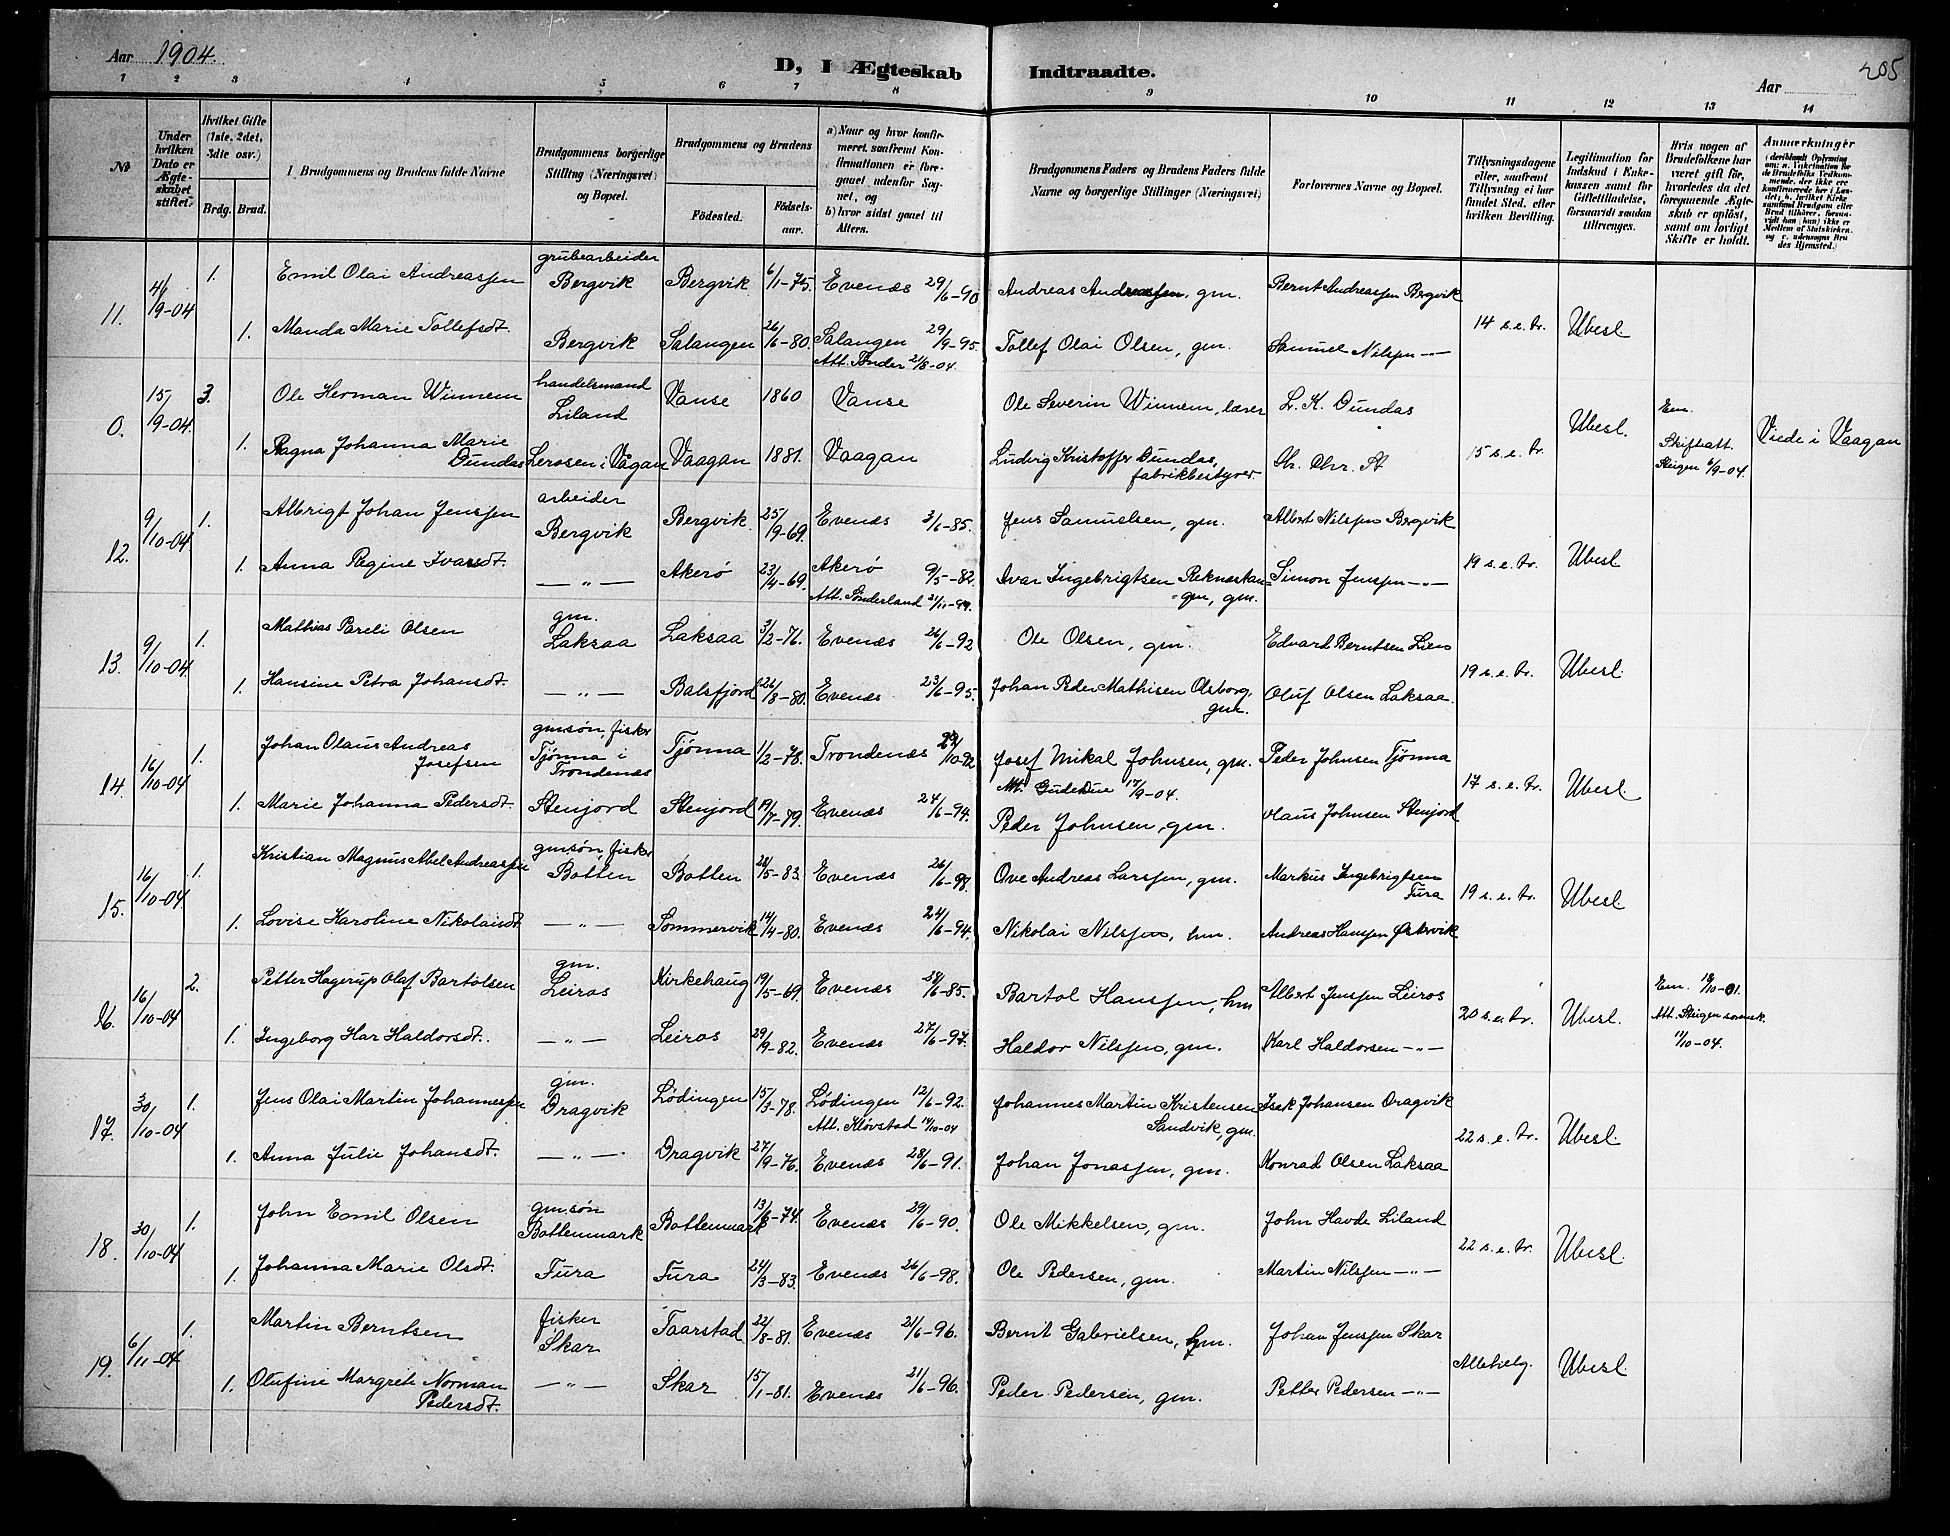 Aar 1904.
D, I Ægteskab Indtraadte.
Aar
205
1 2 3 4 5 6 7 8 9 10 11 12 13 14
№
Under hvilken Dato er Ægteskabet stiftet.
Hvilket Gifte (1ste, 2det, 3die osv.)
Brdg. Brud.
I Brudgommens og Brudens fulde Navne
Brudgommens borgerlige Stilling (Næringsvei) og Bopæl.
Brudgommens og Brudens
Fødested. Fødselsaar.
a) Naar og hvor konfirmeret, saafremt Konfirmationen er foregaaet udenfor Sognet, og
b) hvor sidst gaaet til Alters.
Brudgommens Faders og Brudens Faders fulde Navne og borgerlige Stillinger (Næringsvei)
Forlovernes Navne og Bopæl.
Tillysningsdagene eller, saafremt Tillysning ei har fundet Sted, efter hvilken Bevilling.
Legitimation for Indskud i Enkekassen samt for Giftetilladelse, forsaavidt saadan tiltrænges.
Hvis nogen af Brudefolkene har været gift før, hvorledes da det foregaaende Ægteskab er opløst, samt om lovligt Skifte er holdt.
Anmærkninger
11. 4/9-04 1. Emil Olai Andreassen grubearbeider Bergvik Bergvik 6/1-75. Evenæs 29/6-90 Andreas Andreassen, gm. Bernt Andreassen Bergvik
1. Manda Marie Tollefsdt. Bergvik Salangen 26/6-80. Salangen 29/9-95. Att. Tender 21/8-04. Tollef Olai Olsen, gm. Samuel Nilssen —"— 14 s. e. tr. Ubesl.
0. 15/9-04. 3. Ole Herman Winnem handelsmand Liland Vanse 1860 Vanse Ole Severin Winnem, lærer L. K. Dundas
1. Ragna Johanna Marie Dundas Lerosen i Vågan Vaagan 1881. Vaagan Ludvig Kristoffer Dundas, fabrikbestyrer. Chr. Chr. St 15 s. e. tr. Ubesl. Em. Skifteatt. Steigen 6/9-04. Viede i Vaagan
12. 9/10-04. 1. Albrigt Johan Jenssen arbeider Bergvik Bergvik 25/9-69. Evenæs 3/6-85. Jens Samuelsen, gm. Albert Nilssen Bergvik
1. Anna Regine Ivarsdt. —"— Akerø 23/4-69. Akerø 9/5-82. Att. Sønderland 21/11-99. Ivar Ingebrigtsen Reknestangen, gm. Simon Jenssen —"— 19 s. e. tr. Ubesl
13. 9/10-04. 1. Mathias Pareli Olsen gm. Laksaa Laksaa 3/2-76. Evenæs 26/6-92 Ole Olsen, gm. Edvard Berntsen Liens
1. Hansine Petra Johansdt. —"— Balsfjord 26/8-80. Evenæs 23/6-95. Johan Peder Mathisen Olsborg, gm. Oluf Olsen Laksaa. 19 s. e. tr. Ubesl.
14. 16/10-04 1. Johan Olaus Andreas Josefsen gmsøn, fisker Tjønna i Trondenæs Tjønna 1/2-78. Trondenæs /10-92 Josef Mikal Johnsen, gm. Att. Gudesne 17/9-04. Peder Johnsen Tjønna
1. Marie Johanna Pedersdt. Stenjord Stenjord 19/7-79. Evenæs 24/6-94. Peder Johnsen, gm. Olaus Johnsen Stenjord 17 s. e. tr. Ubesl.
15. 16/10-04. 1. Kristian Magnus Abel Andreassen gmsøn, fisker Botten Botten 28/5-83. Evenæs 26/6-98. Ove Andreas Larssen, gm. Markus Ingebrigtsen Fura
1. Lovise Karoline Nikolaisdt —"— Sommervik 14/4-80. Evenæs 24/6-94. Nikolai Nilssen, hm. Andreas Hanssen Østervik 19 s. e. tr. Ubesl.
16. 16/10-04 2. Petter Hagerup Olaf Bartolsen gm. Leiros Kirkehaug 19/5-69. Evenæs 28/6-85. Bartol Hanssen, hm Albert Jenssen Leiros
1. Ingeborg Har Haldorsdt. —"— Leiros 29/9-82. Evenæs 27/6-97. Haldor Nilssen, gm. Karl Haldorsen —"— 20 s. e. tr. Ubesl. Em. 18/10-01. Att. Steigen sornsk. 11/10-04.
17. 30/10-04 1. Jens Olai Martin Johannessen gm. Dragvik Lødingen 15/3-78. Lødingen 12/6-92. Att. Kløvstad 14/10-04 Johannes Martin Kristensen Sandvik, gm. Isak Johansen Dragvik
1. Anna Julie Johansdt. —"— Dragvik 27/9-76. Evenæs 28/6-91. Johan Jonassen, gm. Konrad Olsen Laksaa 22 s. e. tr. Ubesl.
18. 30/10-04 1. John Emil Olsen gmsøn Bottenmark Bottenmark 13/8-74. Evenæs 29/6-90. Ole Mikkelsen, gm. John Havde Liland
1. Johanna Marie Olsdt. Fura Fura 24/3-83. Evenæs 26/6-98. Ole Pedersen, gm. Martin Nilssen —"— 22 s. e. tr. Ubesl.
19. 6/11-04 1. Martin Berntsen fisker Skar Taarstad 22/8-81. Evenæs 21/6-96. Bernt Gabrielsen, hm. Johan Jenssen Skar
1. Olufine Margreth Norman Pedersdt. —"— Skar 15/1-81. Evenæs 21/6-96. Peder Pedersen, gm. Petter Pedersen —"— Allehelg. Ubesl.